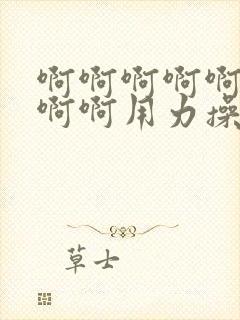 啊啊啊啊啊
啊啊用力操
草士